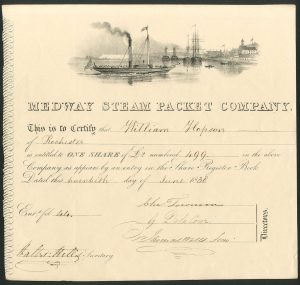 MEDWAY STEAM PACKET COMPANY.
This is to Certify that William Hopson
of Rochester
is entitled to ONE SHARE of £5 numbered 499 in the above
Company as appears by an entry in the Share Register Book
Dated this day of June 1838
Ent. fol 44.
Secretary
Directors.